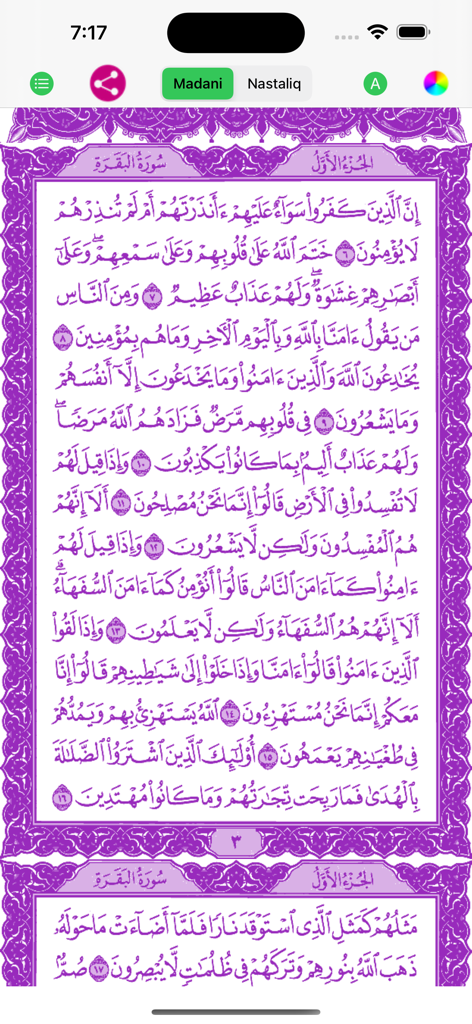 7:17
Madani
Nastaliq
A
الجزء الأول
سورة البقرة
إِنَّ ٱلَّذِينَ كَفَرُوا۟ سَوَآءٌ عَلَيْهِمْ ءَأَنذَرْتَهُمْ أَمْ لَمْ تُنذِرْهُمْ
لَا يُؤْمِنُونَ ٦ خَتَمَ ٱللَّهُ عَلَىٰ قُلُوبِهِمْ وَعَلَىٰ سَمْعِهِمْ ۖ وَعَلَىٰٓ
أَبْصَٰرِهِمْ غِشَٰوَةٌ ۖ وَلَهُمْ عَذَابٌ عَظِيمٌ ٧ وَمِنَ ٱلنَّاسِ
مَن يَقُولُ ءَامَنَّا بِٱللَّهِ وَبِٱلْيَوْمِ ٱلْءَاخِرِ وَمَا هُم بِمُؤْمِنِينَ ٨
يُخَٰدِعُونَ ٱللَّهَ وَٱلَّذِينَ ءَامَنُوا۟ وَمَا يَخْدَعُونَ إِلَّآ أَنفُسَهُمْ
وَمَا يَشْعُرُونَ ٩ فِى قُلُوبِهِم مَّرَضٌ فَزَادَهُمُ ٱللَّهُ مَرَضًا ۖ
وَلَهُمْ عَذَابٌ أَلِيمٌۢ بِمَا كَانُوا۟ يَكْذِبُونَ ١٠ وَإِذَا قِيلَ لَهُمْ
لَا تُفْسِدُوا۟ فِى ٱلْأَرْضِ قَالُوٓا۟ إِنَّمَا نَحْنُ مُصْلِحُونَ ١١ أَلَآ إِنَّهُمْ
هُمُ ٱلْمُفْسِدُونَ وَلَٰكِن لَّا يَشْعُرُونَ ١٢ وَإِذَا قِيلَ لَهُمْ
ءَامِنُوا۟ كَمَآ ءَامَنَ ٱلنَّاسُ قَالُوٓا۟ أَنُؤْمِنُ كَمَآ ءَامَنَ ٱلسُّفَهَآءُ ۗ
أَلَآ إِنَّهُمْ هُمُ ٱلسُّفَهَآءُ وَلَٰكِن لَّا يَعْلَمُونَ ١٣ وَإِذَا لَقُوا۟
ٱلَّذِينَ ءَامَنُوا۟ قَالُوٓا۟ ءَامَنَّا وَإِذَا خَلَوْا۟ إِلَىٰ شَيَٰطِينِهِمْ قَالُوٓا۟ إِنَّا
مَعَكُمْ إِنَّمَا نَحْنُ مُسْتَهْزِءُونَ ١٤ ٱللَّهُ يَسْتَهْزِئُ بِهِمْ وَيَمُدُّهُمْ
فِى طُغْيَٰنِهِمْ يَعْمَهُونَ ١٥ أُو۟لَٰٓئِكَ ٱلَّذِينَ ٱشْتَرَوُا۟ ٱلضَّلَٰلَةَ
بِٱلْهُدَىٰ فَمَا رَبِحَت تِّجَٰرَتُهُمْ وَمَا كَانُوا۟ مُهْتَدِينَ ١٦
٣
الجزء الأول
سورة البقرة
مَثَلُهُمْ كَمَثَلِ ٱلَّذِى ٱسْتَوْقَدَ نَارًا فَلَمَّآ أَضَآءَتْ مَا حَوْلَهُۥ
ذَهَبَ ٱللَّهُ بِنُورِهِمْ وَتَرَكَهُمْ فِى ظُلُمَٰتٍ لَّا يُبْصِرُونَ ١٧ صُمٌّۢ